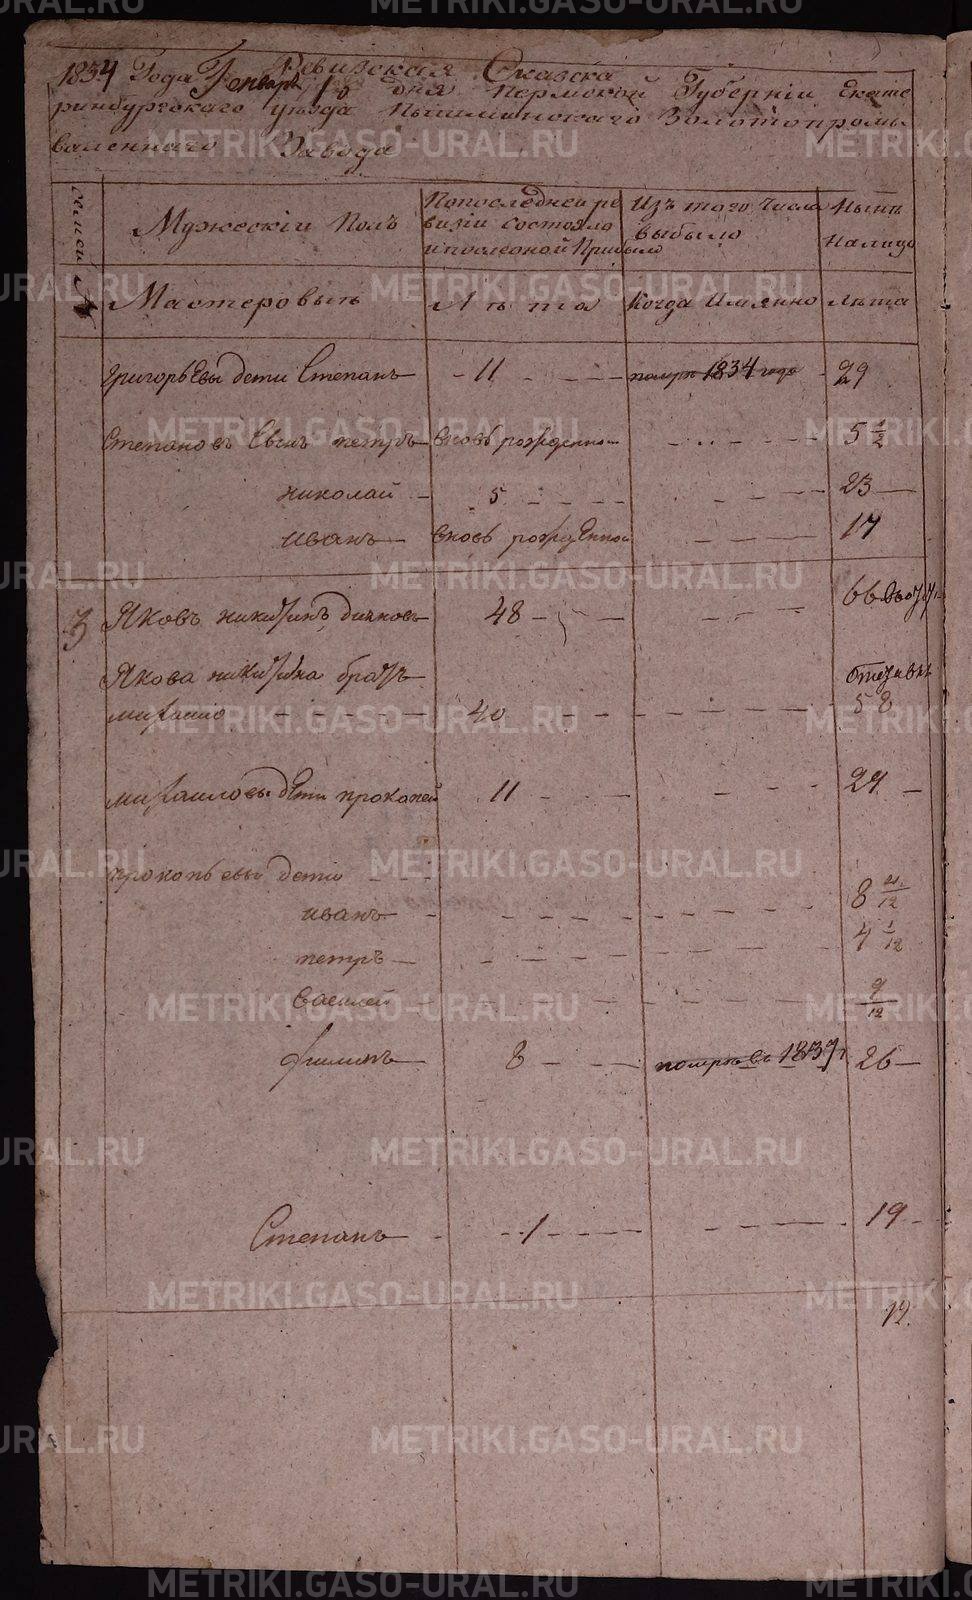 Ревизская Сказка
1834 Года Генваря дня Пермской Губернии Екате
ринбургскаго уѣзда Пышминскаго Золотопромы
валеннаго Завода
семей №
Мужескiй Полъ
По последней ре
визiи состояло
и после оной Прибыло
Изъ того Числа
выбыло
Нынѣ
Налицо
Мастеровыѣ
Лѣта
Когда Имянно
Лѣта
Григорьевы дети Степанъ 11 помръ 1834 года 29
Степановъ Сынъ петръ вновь рожденной 5 1/2
николай 5 23
иванъ вновь рожденной 17
3 Яковъ никитинъ 48 66
Якова никитина братъ
михайло 40 58
михайловы дети прокопей 11 29
прокопьевы дети
иванъ 8
петръ 4 1/12
василей 9/12
филипъ 8 помръ въ 1837 26
Степанъ 1 19
12.
METRIKI.GASO-URAL.RU